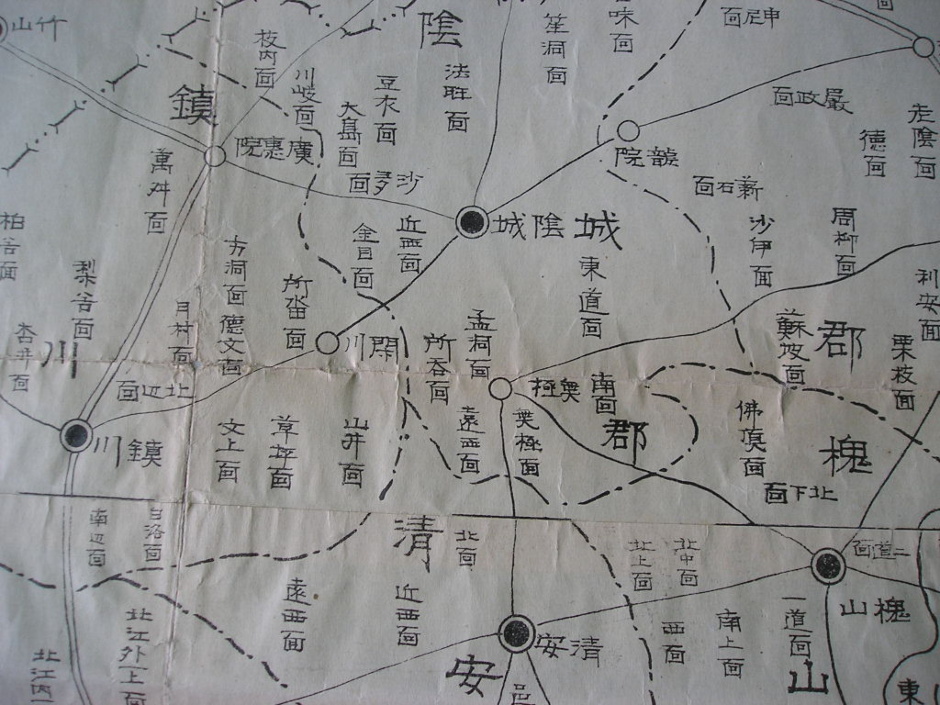 山竹
枝內面
陰
笙洞面
味面
面尼申
川岐面
豆衣面
法旺面
面政嚴
走陰面
德面
鎭
大鳥面
院惠廣
院龍
萬升面
面石薪
城陰城
金目面
近西面
沙伊面
周柳面
柏谷面
梨谷面
方洞面
所沓面
東道面
利安面
月村面
德文面
川閑
所吞面
孟洞面
蘇坡面
郡
栗枝面
杏井面
川
面辺北
極無
南面
川鎭
文上面
草坪面
山井面
遠西面
無極面
郡
佛頂面
槐
面下北
南辺面
白洛面
清
北面
北上面
北中面
面道二
山槐
遠西面
近西面
安清
西面
南上面
一道面
北江外一上面
北江內一
安
邑
山
東